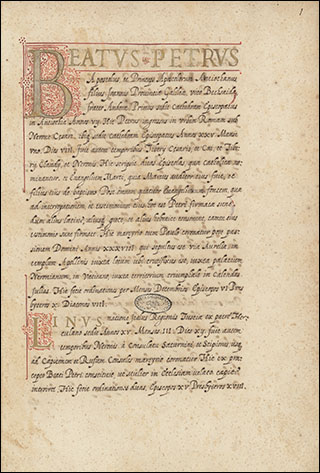 1
BEATVS PETRVS
Apostolus, et Princeps Apostolorum Antiochenus
filius Joannis Provinciae Galileae, vico Bethsaida
frater Andreae Primus sedit Cathedram Episcopatus
in Antiochia Annos vii. Hic Petrus ingressus in urbem Romam sub
Nerone Cesare, ibiq sedit cathedram Episcopatus Annos xxv Menses
duos Dies viii. fuit autem temporibus Tiberij Cesaris, et Caii, et Tibe
rij Claudij, et Neronis. Hic scripsit duas Epistolas, quae catholicae no
minantur, et Evangelium Marci, quia Marcus auditor eius fuit, et
filius eius de baptismo Post omnem
alius latine, alius hebraice
Hic martyrio cum Paulo coronatur post pas
sionem Domini Annos xxxviii qui sepultus est via Aurelia, in
templum Apollinis iuxta locum ubi crucifixus est, iuxta palatium
Neronianum, in Vaticano, iuxta territorium triumphale iii Calendas
Julias. Hic fecit ordinationes per Mensem Decembrem Episcopos vi Pres
byteros x. Diaconos viii.
LINVS
natione Italus Regionis Tusciae ex patre Her
culano sedit Annos xv. Menses iii. Dies xii. fuit autem
temporibus Neronis a Consulatu Saturnini, et Scipionis usq
ad Capitonem et Rufum Consules martyrio coronatur Hic ex prae
cepto Beati Petri constituit, ut mulier in Ecclesiam velato capite
introiret Hic fecit ordinationes duas, Episcopos xv Presbyteros xviii.